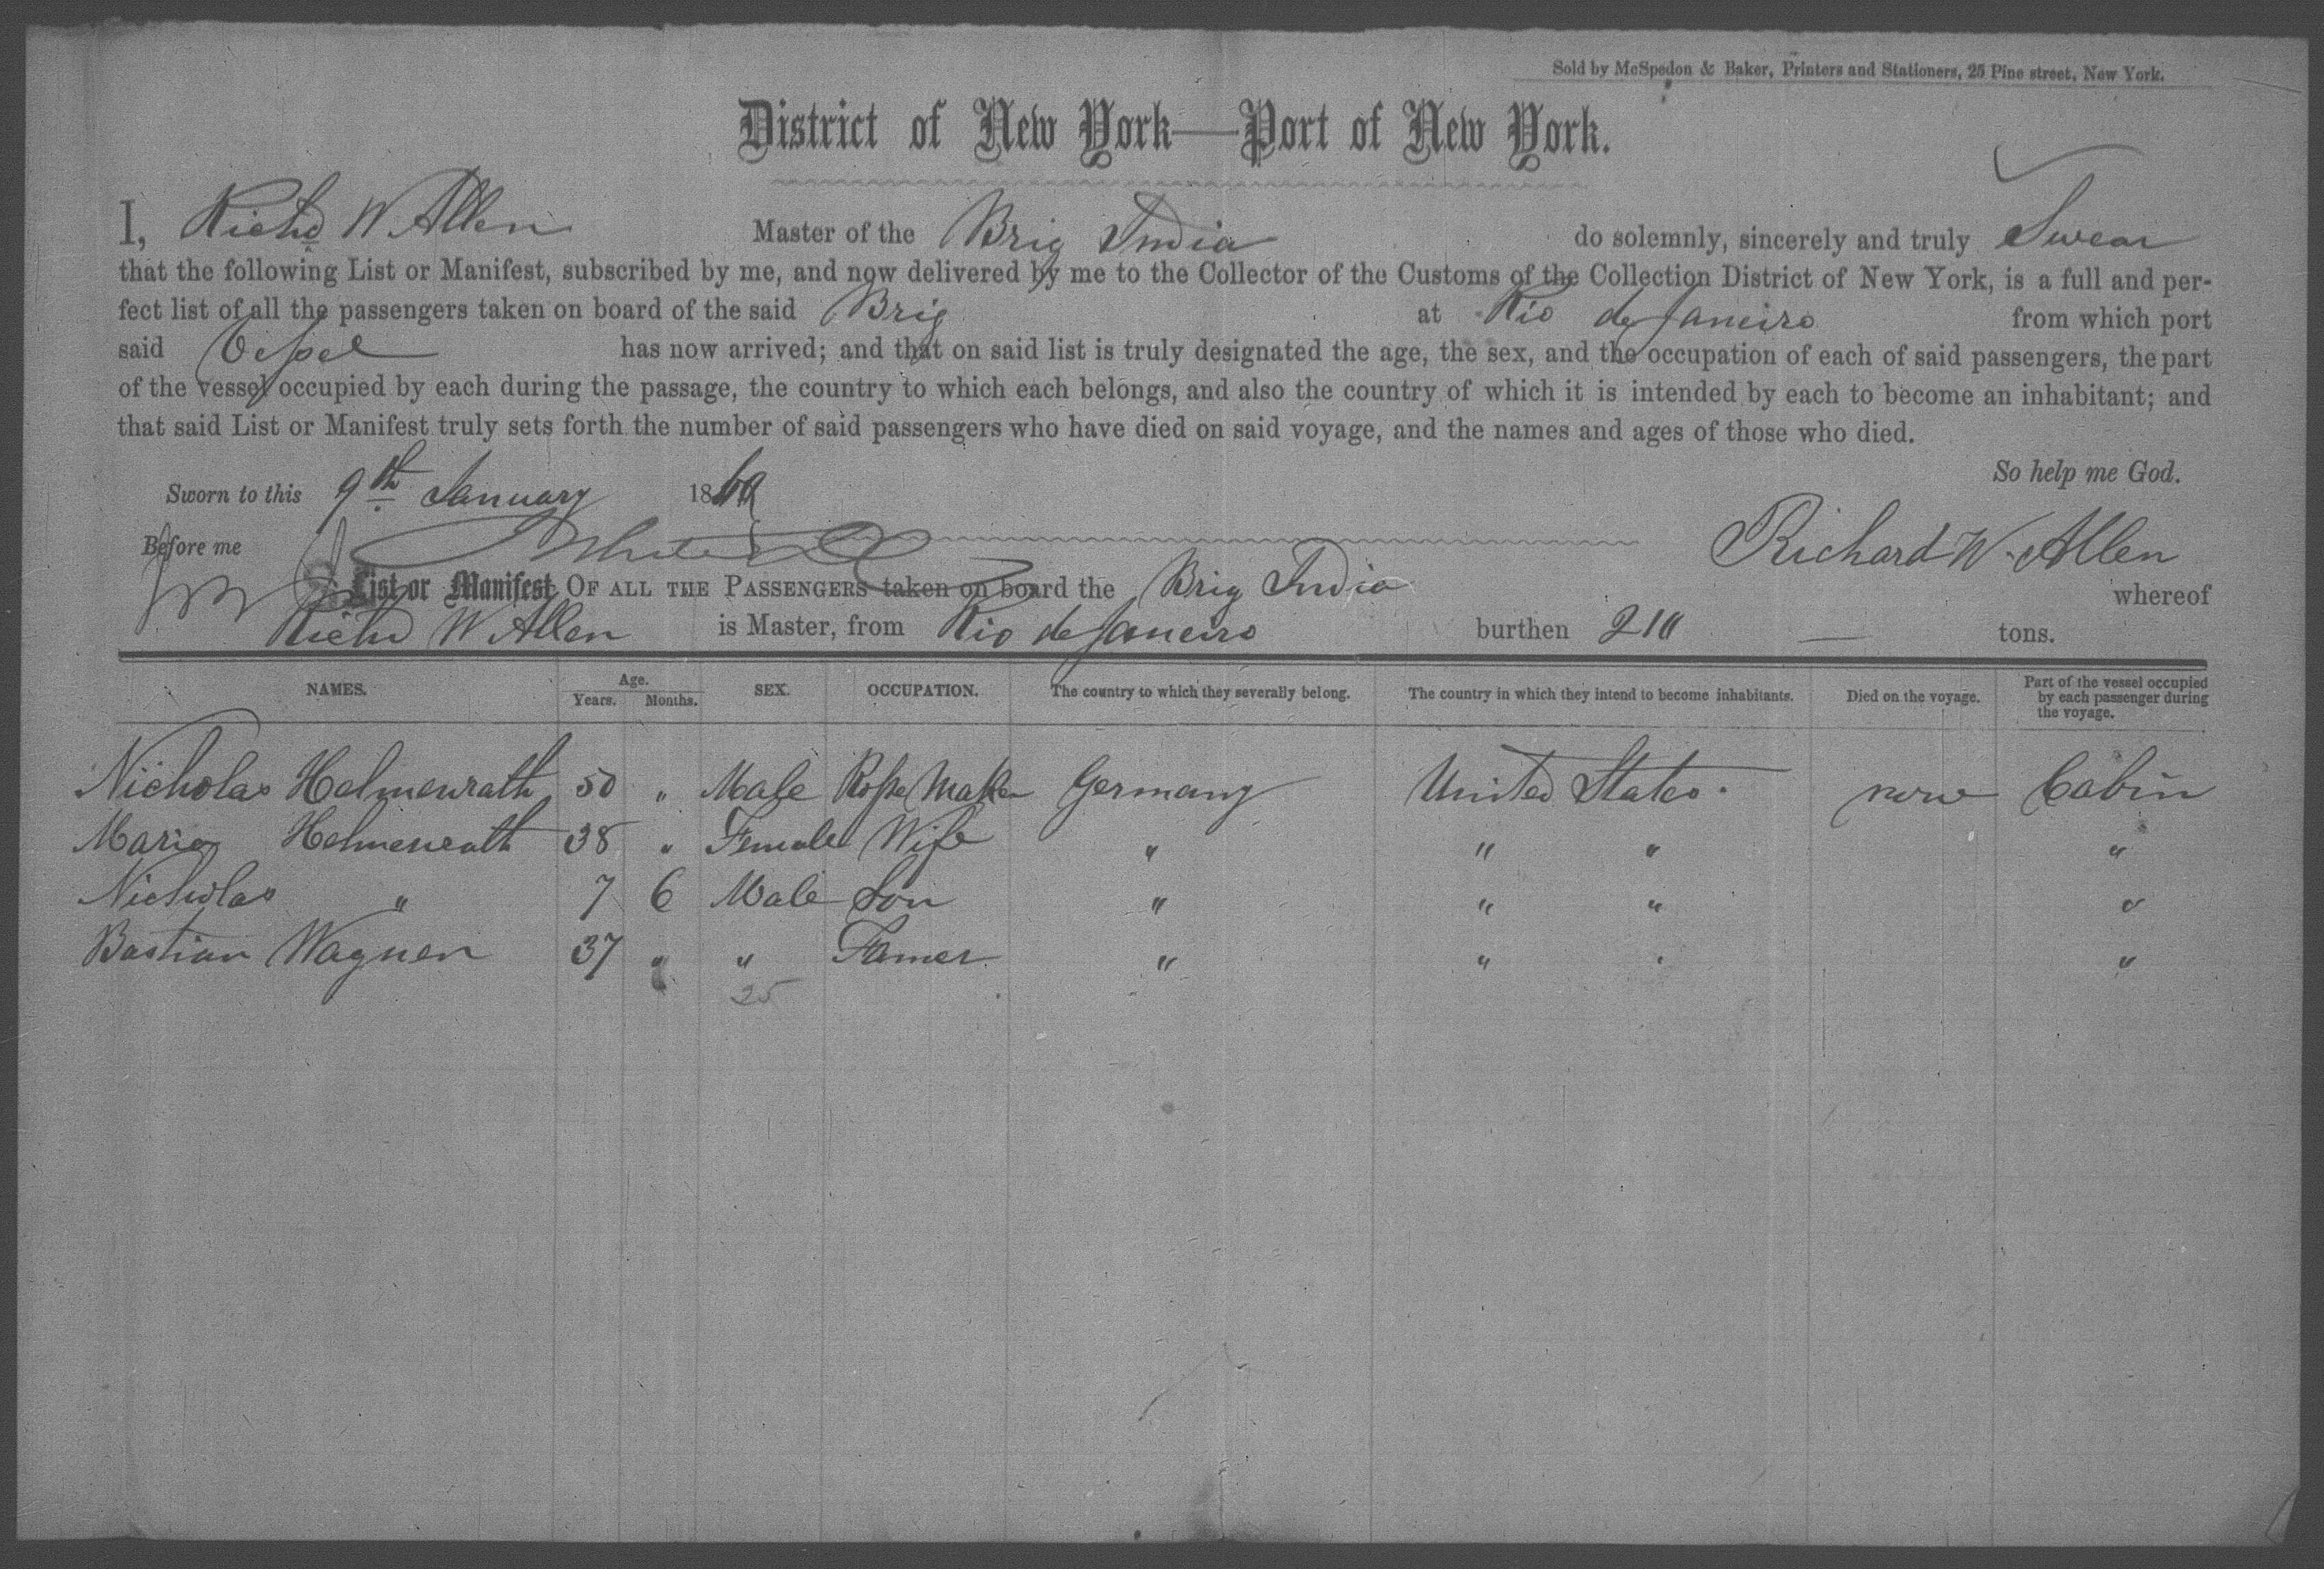 Sold by McSpedon & Baker, Printers and Stationers, 25 Pine street, New York.
District of New York—Port of New York.
I, Richd W. Allen Master of the Brig India do solemnly, sincerely and truly Swear
that the following List or Manifest, subscribed by me, and now delivered by me to the Collector of the Customs of the Collection District of New York, is a full and per-
fect list of all the passengers taken on board of the said Brig at Rio de Janeiro from which port
said Vessel has now arrived; and that on said list is truly designated the age, the sex, and the occupation of each of said passengers, the part
of the vessel occupied by each during the passage, the country to which each belongs, and also the country of which it is intended by each to become an inhabitant; and
that said List or Manifest truly sets forth the number of said passengers who have died on said voyage, and the names and ages of those who died.
So help me God.
Sworn to this 9th January 1869
Before me Richard W. Allen
List or Manifest OF ALL THE PASSENGERS taken on board the Brig India whereof
Richd W Allen is Master, from Rio de Janeiro burthen 210 — tons.
NAMES. Age. Years. Months. SEX. OCCUPATION. The country to which they severally belong. The country in which they intend to become inhabitants. Died on the voyage. Part of the vessel occupied by each passenger during the voyage.
Nicholas Helmenrath 50 " Male Rope Maker Germany United States. none Cabin
Maria Helmenrath 38 " Female Wife " " " "
Nicholas " 7 6 Male Son " " " "
Bastian Wagner 37 " " Famer " " " "
25